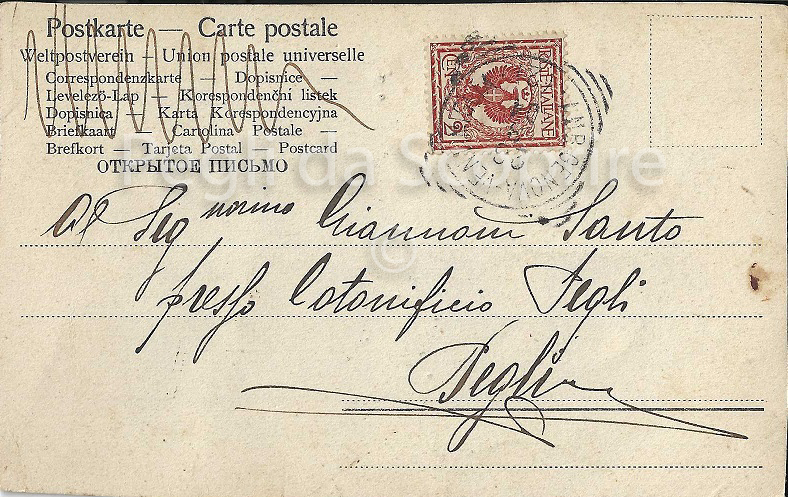 Postkarte — Carte postale
Weltpostverein — Union postale universelle
Correspondenzkarte — Dopisnice —
Levelező-Lap — Korespondenční listek
Dopisnica — Karta Korespondencyjna
Briefkaart — Cartolina Postale —
Brefkort — Tarjeta Postal — Postcard
ОТКРЫТОЕ ПИСЬМО
POSTE ITALIANE
CENT. 2
Pegli da Scoprire
©
Al Seg norino Giannoni Santo
presso Cotonificio Pegli
Pegli